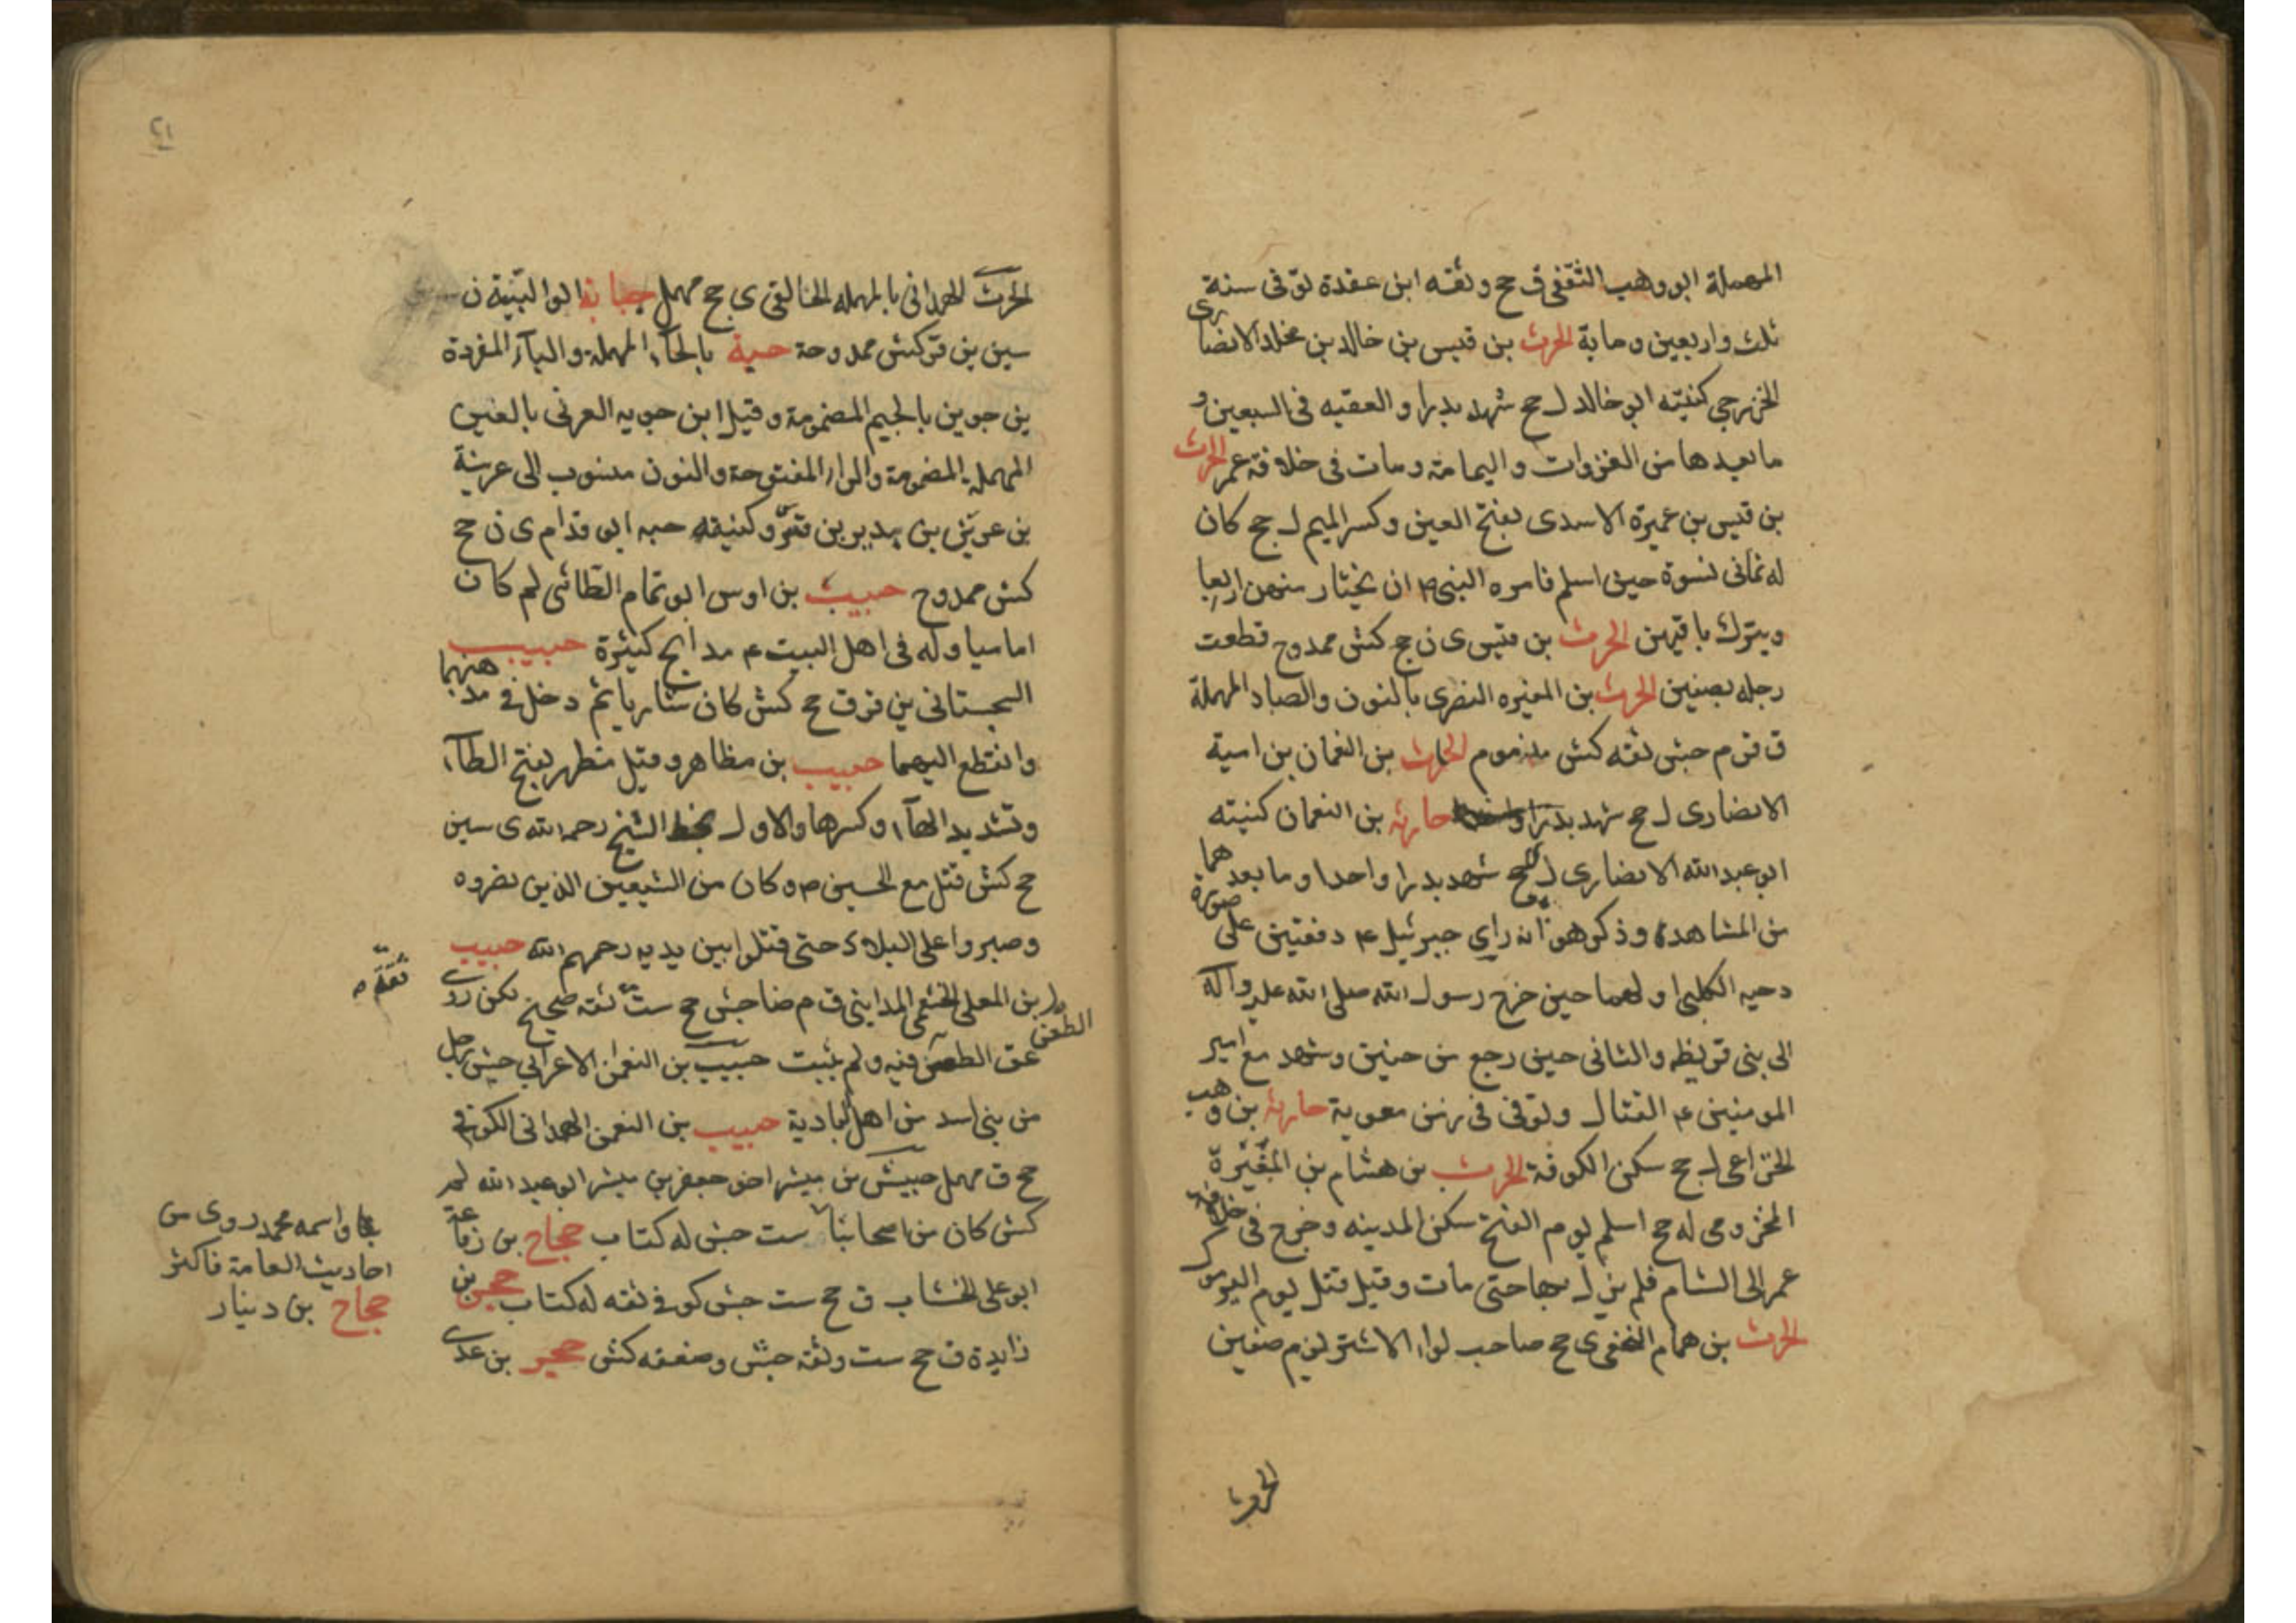 المهملة ابو وهب الثقفي ق جح وثقه ابن عقدة توفى سنة
ثلث واربعين ومائة الحرث بن قيس بن خالد بن مخلد الانصاري
الخزرجي كنيته ابو خالد ل جح شهد بدرا والعقبه فى السبعين و
ما بعدها من الغزوات واليمامة ومات فى خلافة عمر الحرث
بن قيس بن عميرة الاسدى بفتح العين وكسر الميم ل جح كان
له ثمانى نسوة حين اسلم فامره النبى ص ان يختار منهن اربعا
ويترك باقيهن الحرث بن قيس ى ن جح كش ممدوح قطعت
رجله بصفين الحرث بن المغيره النصرى بالنون والصاد المهملة
ق قر م جش ثقه كش مذموم الحارث بن النعمان بن امية
الانصارى ل جح شهد بدرا حارثه بن النعمان كنيته
ابو عبد الله الانصارى ل جح شهد بدرا واحدا وما بعد هما
من المشاهد وذكر هو انه راي جبرئيل ع دفعتين على صورة
دحيه الكلبى اولهما حين خرج رسول الله صلى الله عليه وآله
الى بنى قريظه والثانى حين رجع من حنين وشهد مع امير
المومنين ع القتال وتوفى فى زمن معوية حارثه بن وهب
الخزاعى ل جح سكن الكوفة الحرث بن هشام بن المغيرة
المخزومى له جح اسلم يوم الفتح سكن المدينه وخرج فى خلافة
عمر الى الشام فلم يزل بها حتى مات وقيل قتل يوم اليرموك
الحرث بن همام النخعى ى جح صاحب لواء الاشتر يوم صفين
الحرث
٢١
الحرث الهمدانى بالمهمله الخالقى ى جح مهمل حبابة الوالبيّة ن
سين ين قر كش ممدوحة حبة بالحآء المهملة والبآء المفردة
بن جوين بالجيم المضمومة وقيل ابن جويه العرنى بالعين
المهمله المضمومة والراء المفتوحة والنون منسوب الى عرينة
بن عرين بن بدير بن قسر وكنيته حبه ابو قدام ى ن جح
كش ممدوح حبيب بن اوس ابو تمام الطائى لم كان
اماميا وله فى اهل البيت ع مدايح كثيرة حبيب
السجستانى ين قر ق جح كش كان شاريا ثم دخل فى مذهبهما
وانقطع اليهما حبيب بن مظاهر وقيل مظهر بفتح الطآء
وتشديد الهآء وكسرها والاول بخط الشيخ رحمه الله ى سين
جح كش قتل مع الحسين ع وكان من السبعين الذين نصروه
وصبروا على البلاء حتى قتلوا بين يديه رحمهم الله حبيب
بن المعلى الخثعمى المداينى ق م ضا جش جح ست ثقه صحيح لكن روى
عق الطعن فيه ولم يثبت حبيب بن النعمن الاعرابي جش رجل
الطعن
ثقة
من بنى اسد من اهل البادية حبيب بن النعمن الهمدانى الكوفي
جح ق مهمل حبيش بن مبشر اخو جعفر بن مبشر ابو عبد الله لم
كش كان من اصحابنا ست جش له كتاب حجاج بن رفاعة
ابو على الخشاب ق جح ست جش كوفي ثقه له كتاب حجر بن
زايدة ق جح ست وثقه جش وضعفه كش حجر بن عدى
واسمه محمد روى من
احاديث العامة فاكثر
حجاج بن دينار